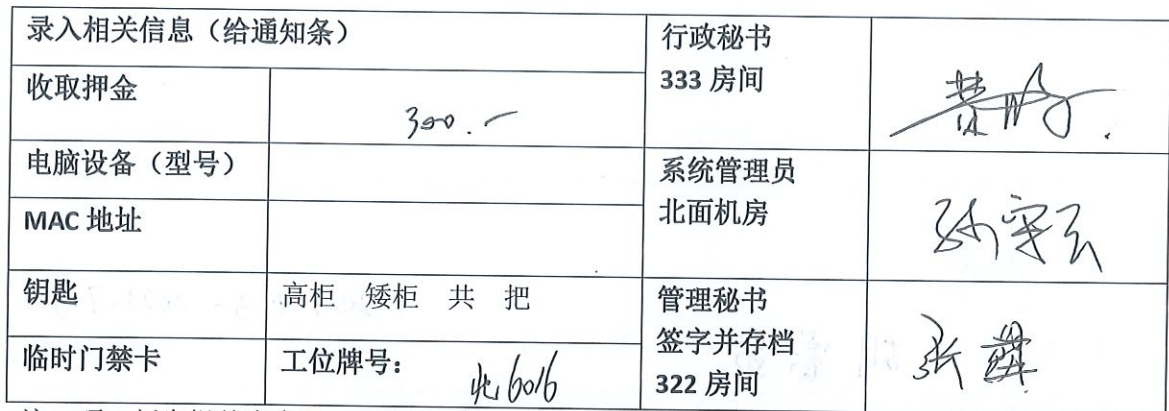 录入相关信息（给通知条）
行政秘书
333 房间
收取押金
300.-
电脑设备（型号）
系统管理员
北面机房
MAC 地址
孙守云
钥匙
高柜 矮柜 共 把
管理秘书
签字并存档
322 房间
临时门禁卡
工位牌号：
北6016
张